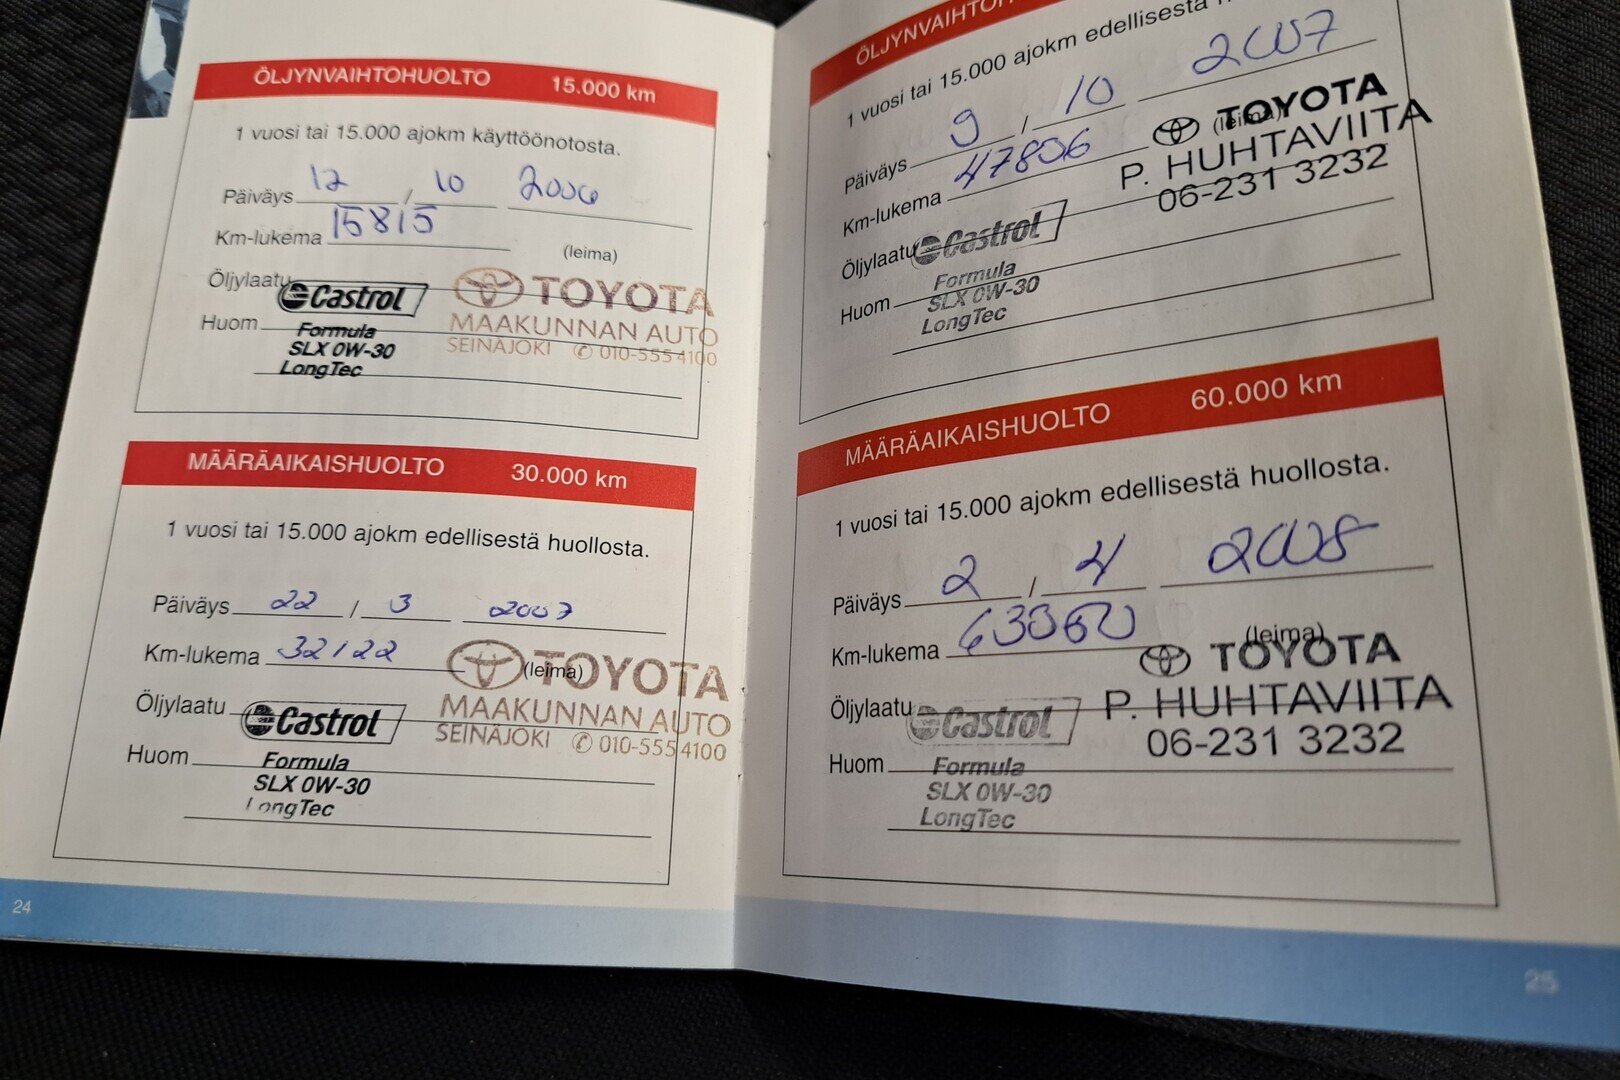 ÖLJYNVAIHTOHUOLTO 15.000 km
1 vuosi tai 15.000 ajokm käyttöönotosta.
Päiväys 12 / 10 2006
Km-lukema 15815
(leima)
Öljylaatu Castrol
TOYOTA
Huom Formula
MAAKUNNAN AUTO
SLX 0W-30
SEINÄJOKI ✆ 010-555 4100
LongTec
MÄÄRÄAIKAISHUOLTO 30.000 km
1 vuosi tai 15.000 ajokm edellisestä huollosta.
Päiväys 22 / 3 2007
Km-lukema 32122
(leima) TOYOTA
Öljylaatu Castrol
MAAKUNNAN AUTO
SEINÄJOKI ✆ 010-555 4100
Huom Formula
SLX 0W-30
LongTec
24
ÖLJYNVAIHTO
1 vuosi tai 15.000 ajokm edellisestä
Päiväys 9 / 10 2007
(leima) TOYOTA
Km-lukema 47806
P. HUHTAVIITA
06-231 3232
Öljylaatu Castrol
Huom Formula
SLX 0W-30
LongTec
MÄÄRÄAIKAISHUOLTO 60.000 km
1 vuosi tai 15.000 ajokm edellisestä huollosta.
Päiväys 2 / 4 2008
Km-lukema 63060
(leima)
TOYOTA
Öljylaatu Castrol
P. HUHTAVIITA
06-231 3232
Huom Formula
SLX 0W-30
LongTec
25